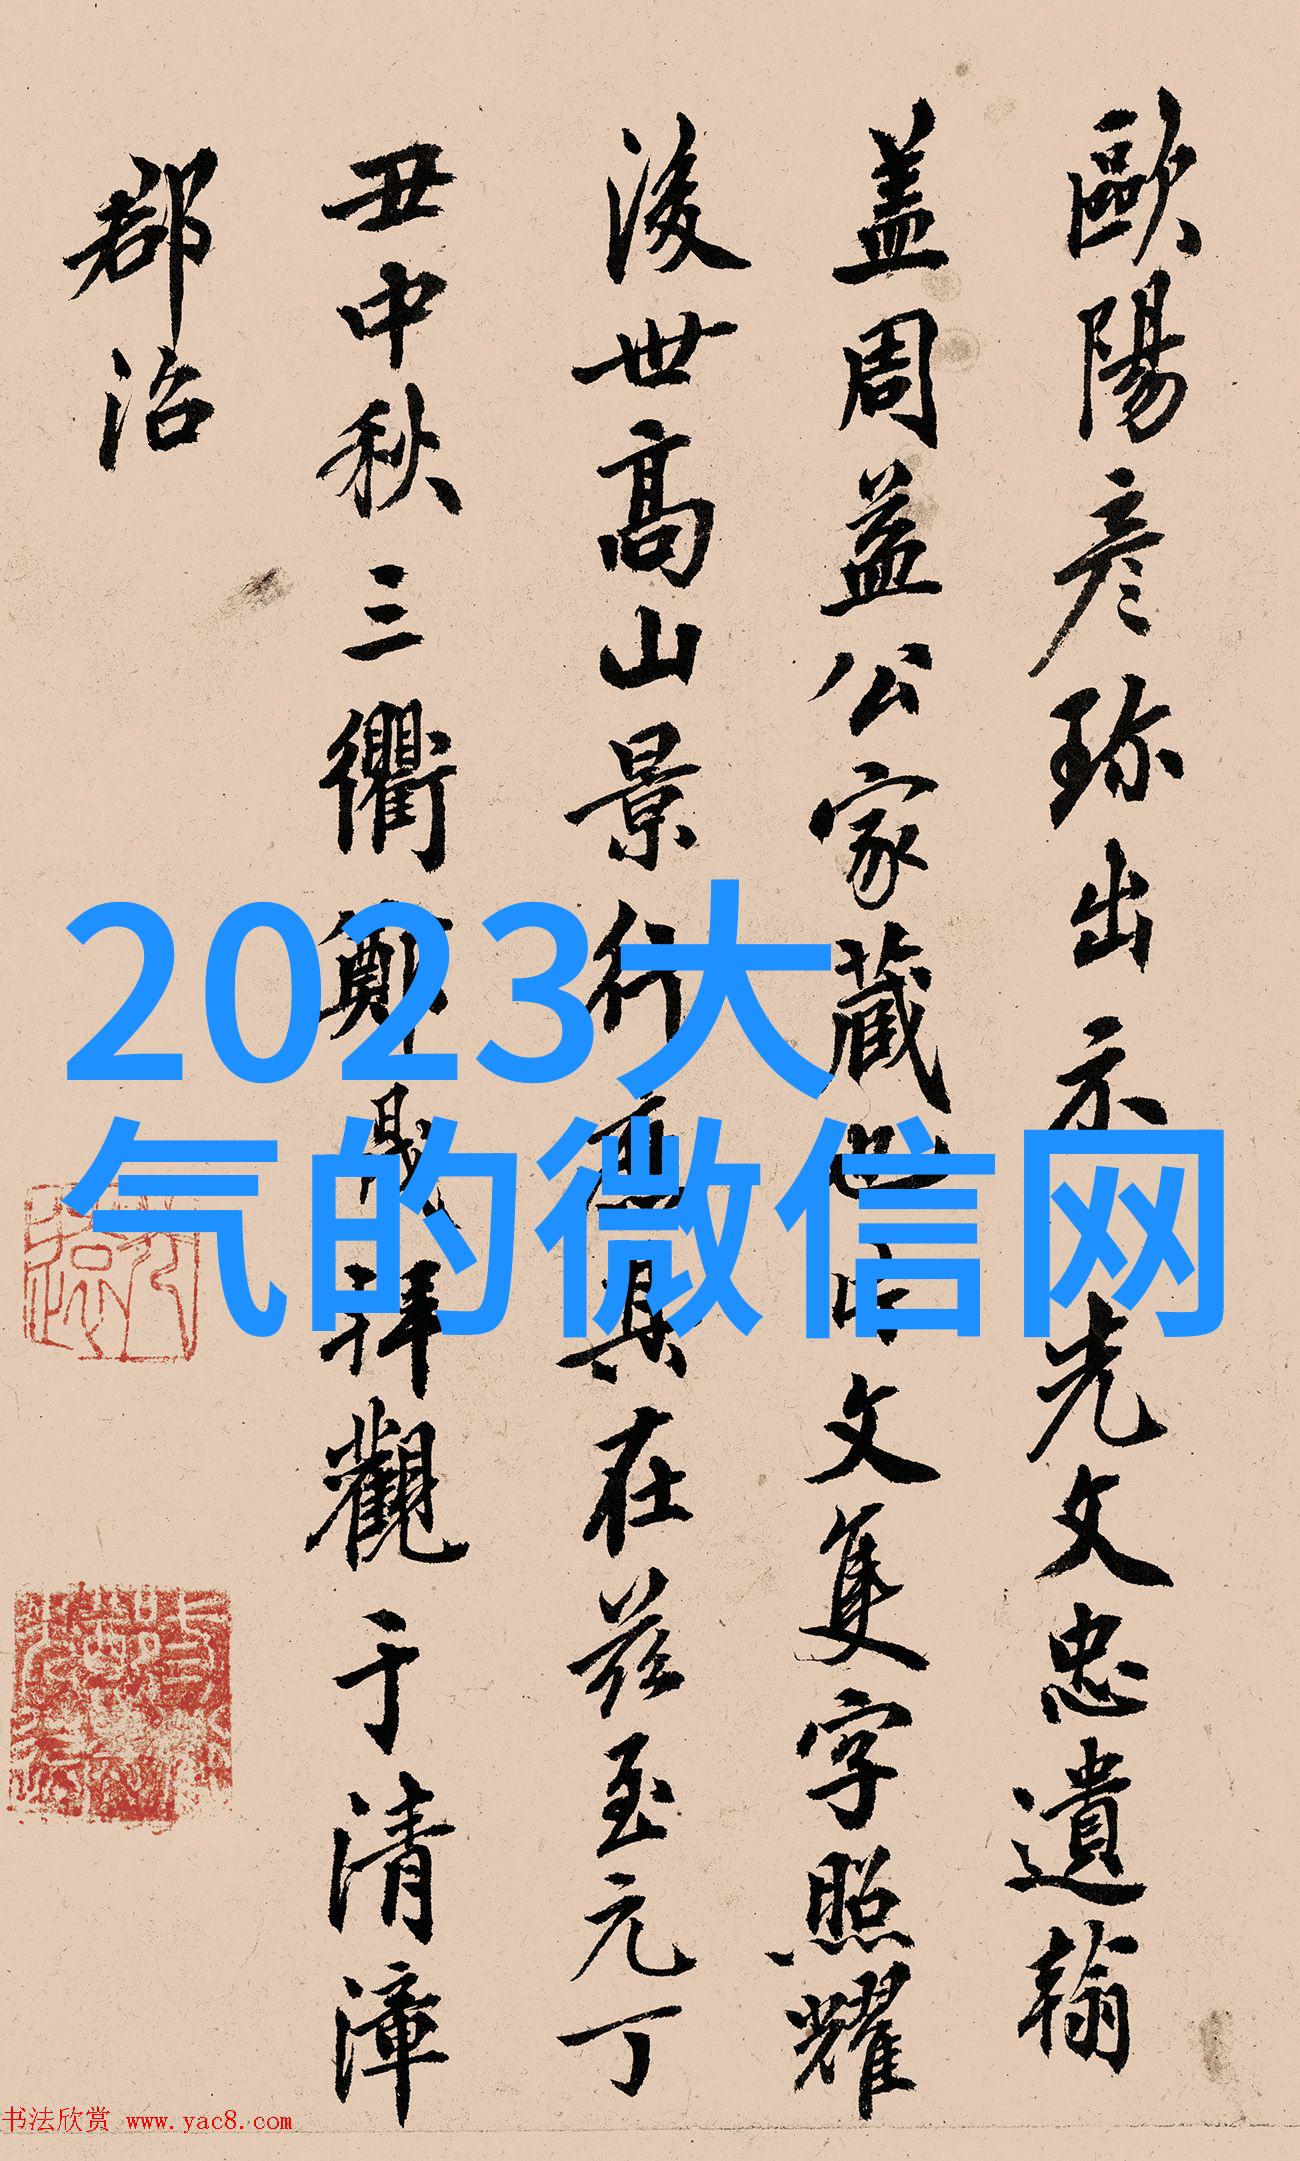 歐陽彥珎出示光文忠遺翰
盖周益公家藏也中文隻字照耀
後世高山景行意具在茲至元丁
丑中秋三衢鄭晟拜觀于清漳
郡治
2023大
气的微信网
书法欣赏 www.yac8.com